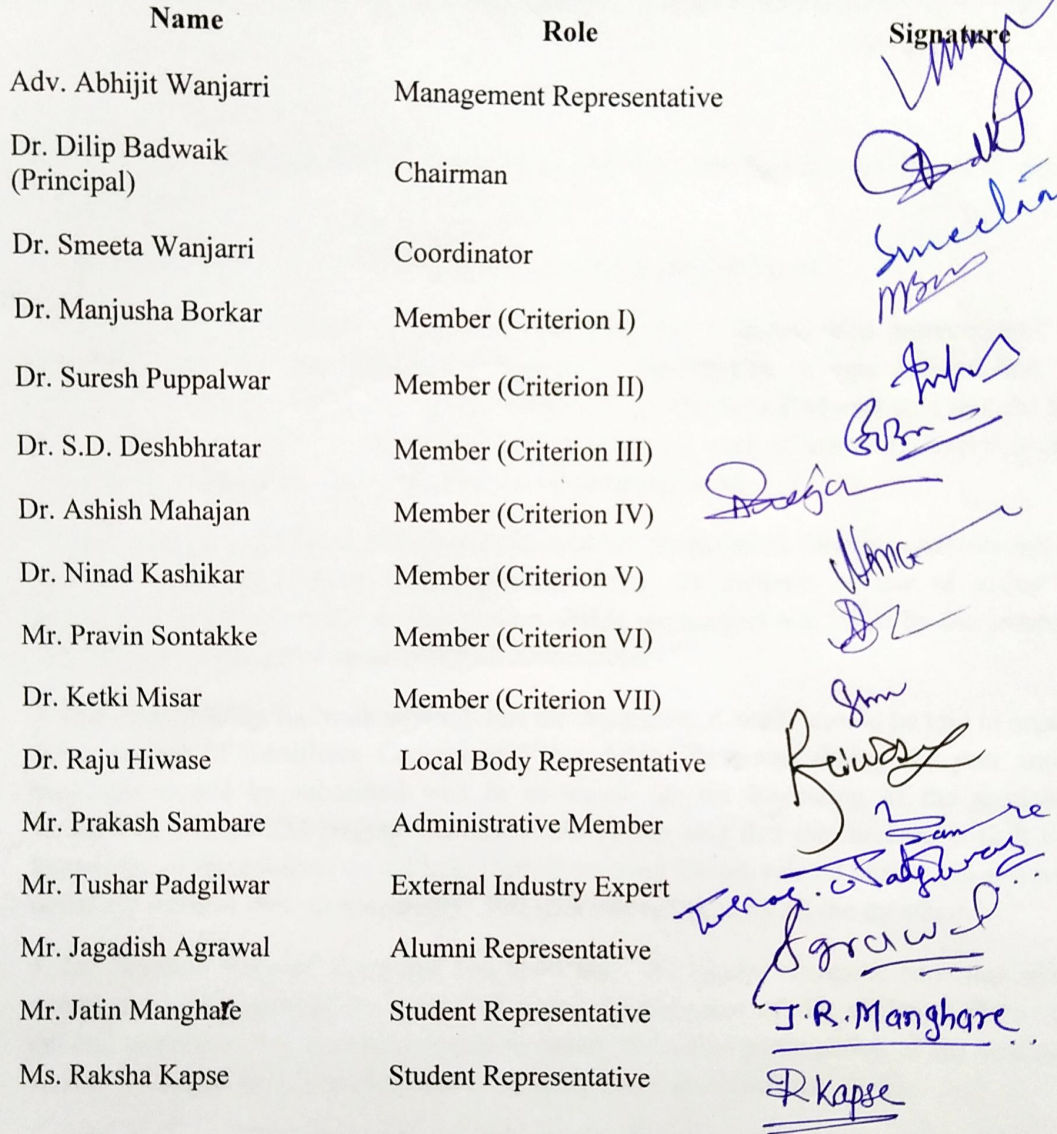 Name Role Signature
Adv. Abhijit Wanjarri Management Representative
Dr. Dilip Badwaik
(Principal) Chairman
Dr. Smeeta Wanjarri Coordinator Smeeta
Dr. Manjusha Borkar Member (Criterion I)
Dr. Suresh Puppalwar Member (Criterion II)
Dr. S.D. Deshbhratar Member (Criterion III)
Dr. Ashish Mahajan Member (Criterion IV)
Dr. Ninad Kashikar Member (Criterion V)
Mr. Pravin Sontakke Member (Criterion VI)
Dr. Ketki Misar Member (Criterion VII)
Dr. Raju Hiwase Local Body Representative
Mr. Prakash Sambare Administrative Member
Mr. Tushar Padgilwar External Industry Expert
Mr. Jagadish Agrawal Alumni Representative Agrawal
Mr. Jatin Manghare Student Representative J.R.Manghare
Ms. Raksha Kapse Student Representative R Kapse